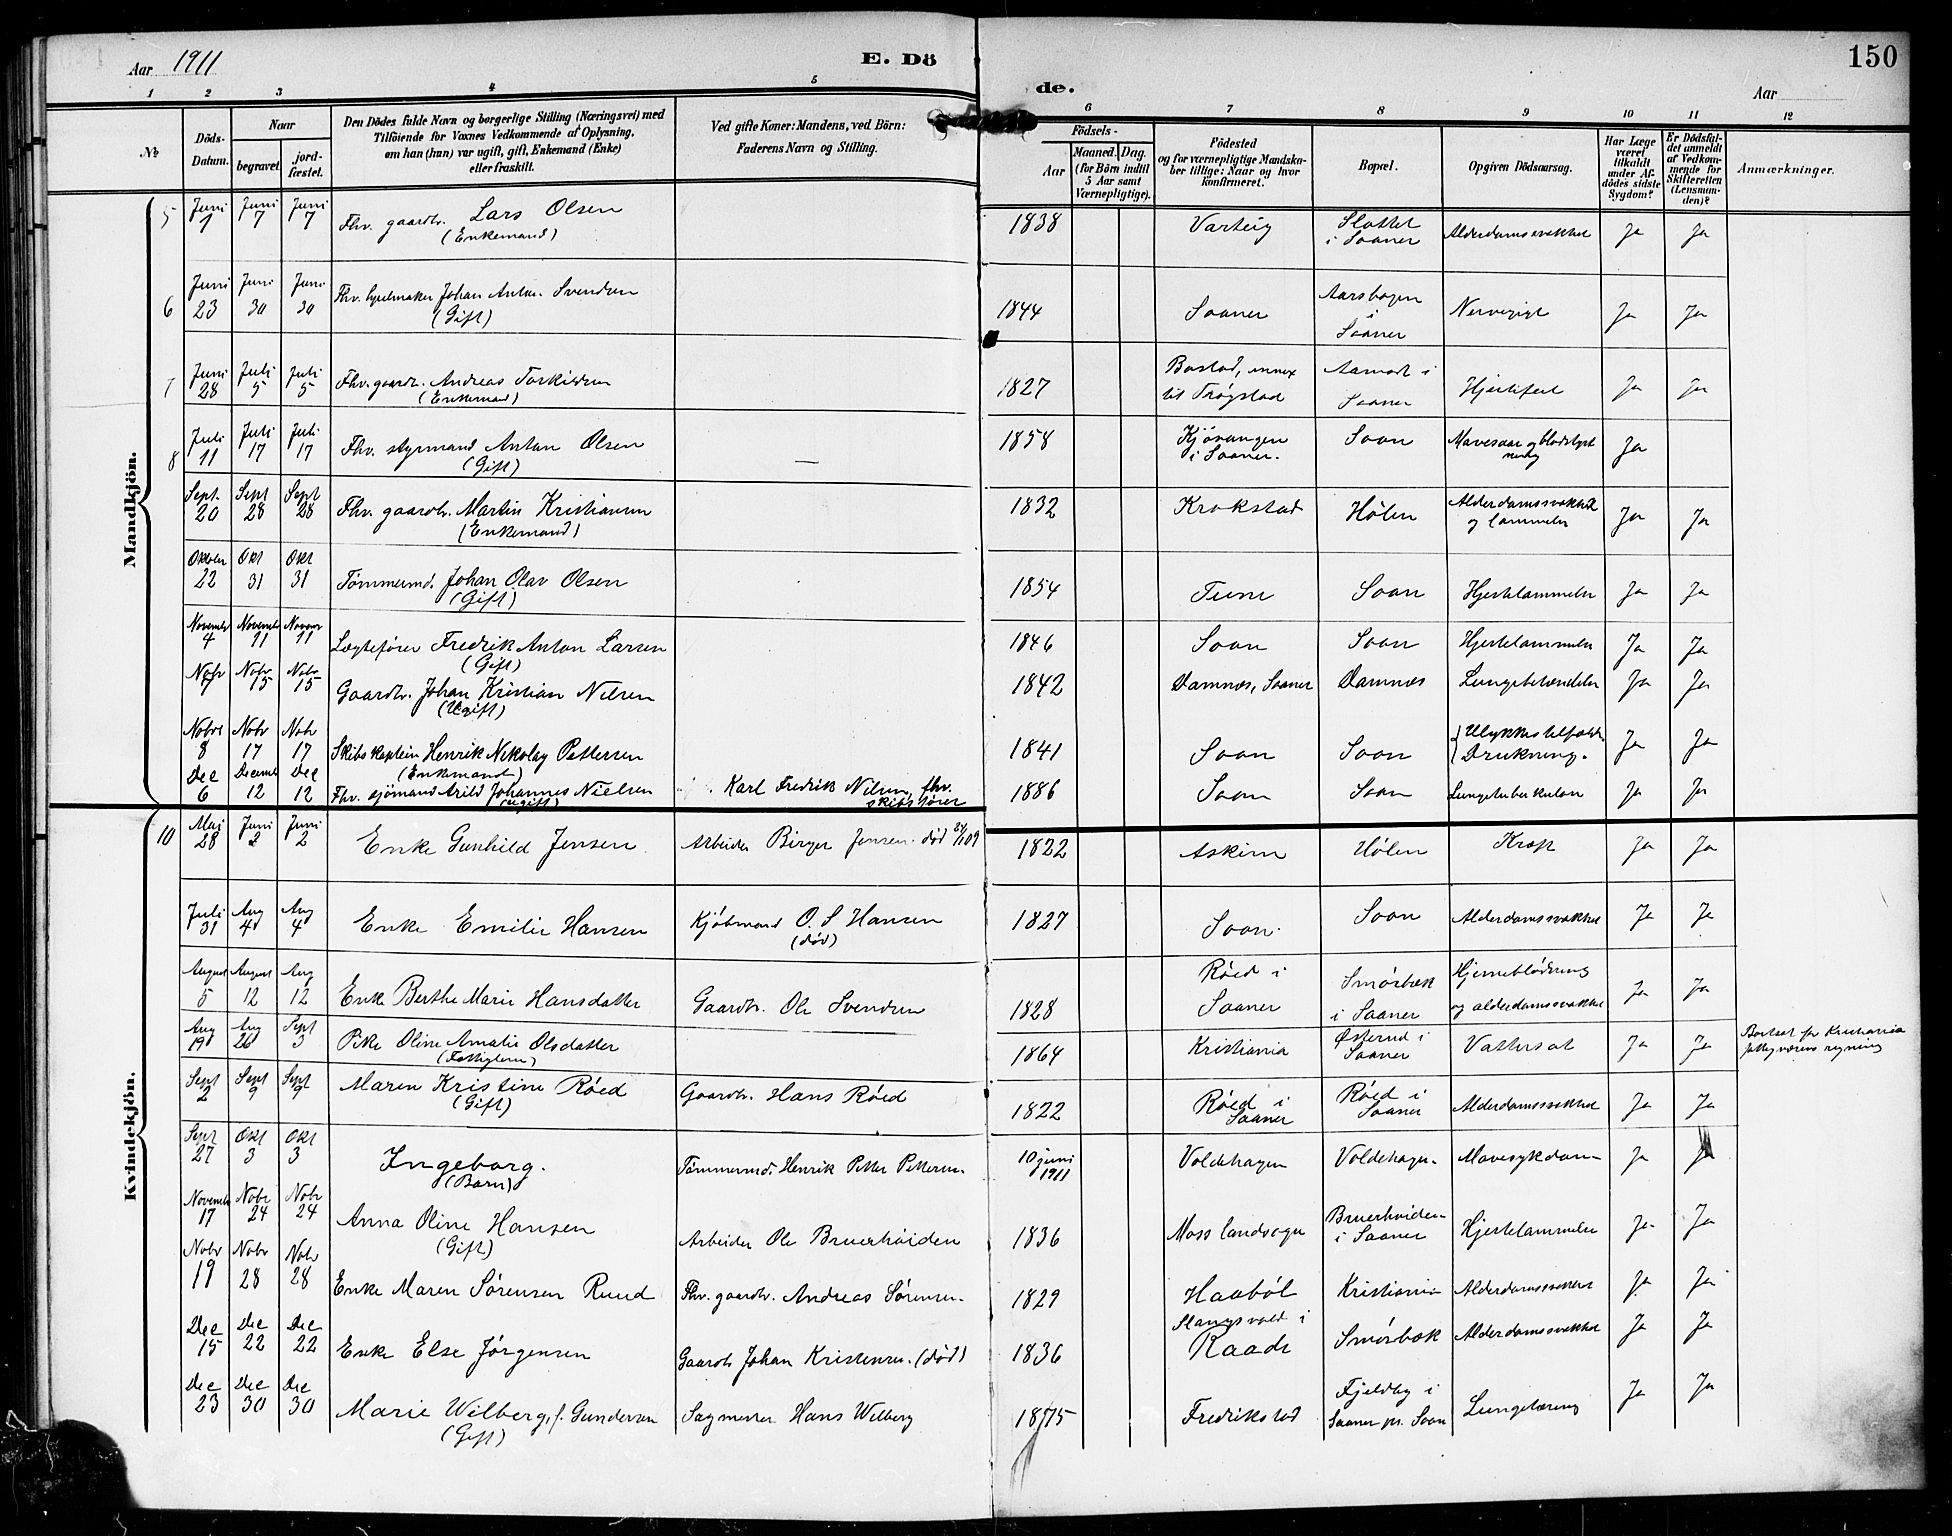 Aar 1911
E. Dö
de.
150
Aar
1 2 3 4 5 6 7 8 9 10 11 12
№
Döds-Datum.
Naar
begravet.
jord-fæstet.
Den Dödes fulde Navn og borgerlige Stilling (Næringsvei) med
Tilföiende for Voxnes Vedkommende af Oplysning,
om han (hun) var ugift, gift, Enkemand (Enke)
eller fraskilt.
Ved gifte Koner: Mandens, ved Börn:
Faderens Navn og Stilling.
Födsels-
Aar
Maaned. Dag.
(for Börn indtil
5 Aar samt
Værnepligtige).
Födested
og for værnepligtige Mandska-
ber tillige: Naar og hvor
konfirmeret.
Bopæl.
Opgiven Dödsaarsag.
Har Læge
været
tilkaldt
under Af-
dödes sidste
Sygdom?
Er Dödsfal-
det anmeldt
af Vedkom-
mende for
Skifteretten
(Lensman-
den)?
Anmærkninger.
Mandkjön.
5 Juni 1 Juni 7 Juni 7 Fhv. gaardbr. Lars Olsen (Enkemand) 1838 Varteig Slottet i Saaner Alderdomssvakhet Ja Ja
6 Juni 23 Juni 30 Juni 30 Fhv. hjulmaker Johan Anton Svendsen (Gift) 1844 Saaner Aarshagen i Saaner Nervegigt Ja Ja
7 Juni 28 Juli 5 Juli 5 Fhv. gaardbr. Andreas Torkildsen (Enkemand) 1827 Baastad, annex til Trøgstad Aamodt i Saaner Hjertefeil Ja Ja
8 Juli 11 Juli 17 Juli 17 Fhv. styrmand Anton Olsen (Gift) — 1858 Kjøvangen i Saaner. Soon Mavesaar og blodstyrtning Ja
Sept. 20 Sept 28 Sept 28 Fhv. gaardbr. Martin Kristiansen (Enkemand) 1832 Krokstad Hølen Alderdomssvakhet og lammelse Ja Ja
Oktober 22 Okt 31 Okt 31 Tømmermd. Johan Olav Olsen (Gift) 1854 Tune Soon Hjertelammelse Ja Ja
November 4 November 11 Novemr 11 Lægtefører Fredrik Anton Larsen (Gift) 1846 Soon Soon Hjertelammelse Ja Ja
Nobr 7 Nobr 15 Nobr 15 Gaardbr. Johan Kristian Nilsen (Ugift) 1842 Damnæs, Saaner Damnæs Lungebetændelse Ja Ja
Nobr 8 Nobr 17 Nobr 17 Skibskaptein Henrik Nikolay Pettersen (Enkemand) 1841 Soon Soon Ulykkestilfælde Drukning. Ja Ja
Dec 6 Decemb 12 Dec 12 Fhv. sjømand Arild Johannes Nielsen (ugift) Karl Fredrik Nilsen, fhv. skibsfører 1886 Soon Soon Lungetuberkulose Ja Ja
Kvindekjön.
10 Mai 28 Juni 2 Juni 2 Enke Gunhild Jensen Arbeider Birger Jensen død 1822 Askim Hølen Kræft Ja Ja
Juli 31 Aug 4 Aug 4 Enke Emilie Hansen Kjøbmand O. S Hansen (død) 1827 Soon. Soon Alderdomssvakhet Ja Ja
August 5 August 12 Aug 12 Enke Berthe Marie Hansdatter Gaardbr. Ole Svendsen 1828 Røed i Saaner Smørbæk i Saaner Hjerneblødning og alderdomssvakhet Ja Ja
Aug 19 Aug 26 Sept 3 Pike Oline Amalie Olsdatter (Fattiglem) 1864 Kristiania Østerud i Saaner Vattersot Ja Ja Bortsat for Kristiania fattigvæsens regning
Sept 2 Sept 9 Sept 9 Maren Kristine Røed (Gift) Gaardbr. Hans Røed 1822 Røed i Saaner Røed i Saaner Alderdomssvakhet Ja Ja
Sept 27 Okt 3 Okt 3 Ingeborg. (Barn) Tømmermd. Henrik Petter Pettersen. 10 juni 1911 Voldehagen Voldehagen. Mavesykdom Ja Ja
November 17 Nobr 24 Nobr 24 Anna Oline Hansen (Gift) Arbeider Ole Bruerhøiden 1836 Moss landsogn Bruerhøiden i Saaner Hjertelammelse Ja Ja
Nobr 19 Nobr 28 Nobr 28 Enke Maren Sørensen Ruud Fhv. gaardbr. Andreas Sørensen. 1829 Haabøl Kristiania Alderdomssvakhet Ja Ja
Dec 15 Dec 22 Dec 22 Enke Else Jørgensen Gaardb Johan Kristensen. (død) 1836 Slangsvold i Raade Smørbæk Alderdomssvakhet Ja Ja
Dec 23 Dec 30 Dec 30 Marie Wilberg, f. Gundersen (Gift) Sagmester Hans Wilberg 1875 Fredrikstad Fjeldby i Saaner pr. Soon Lungetæring Ja Ja